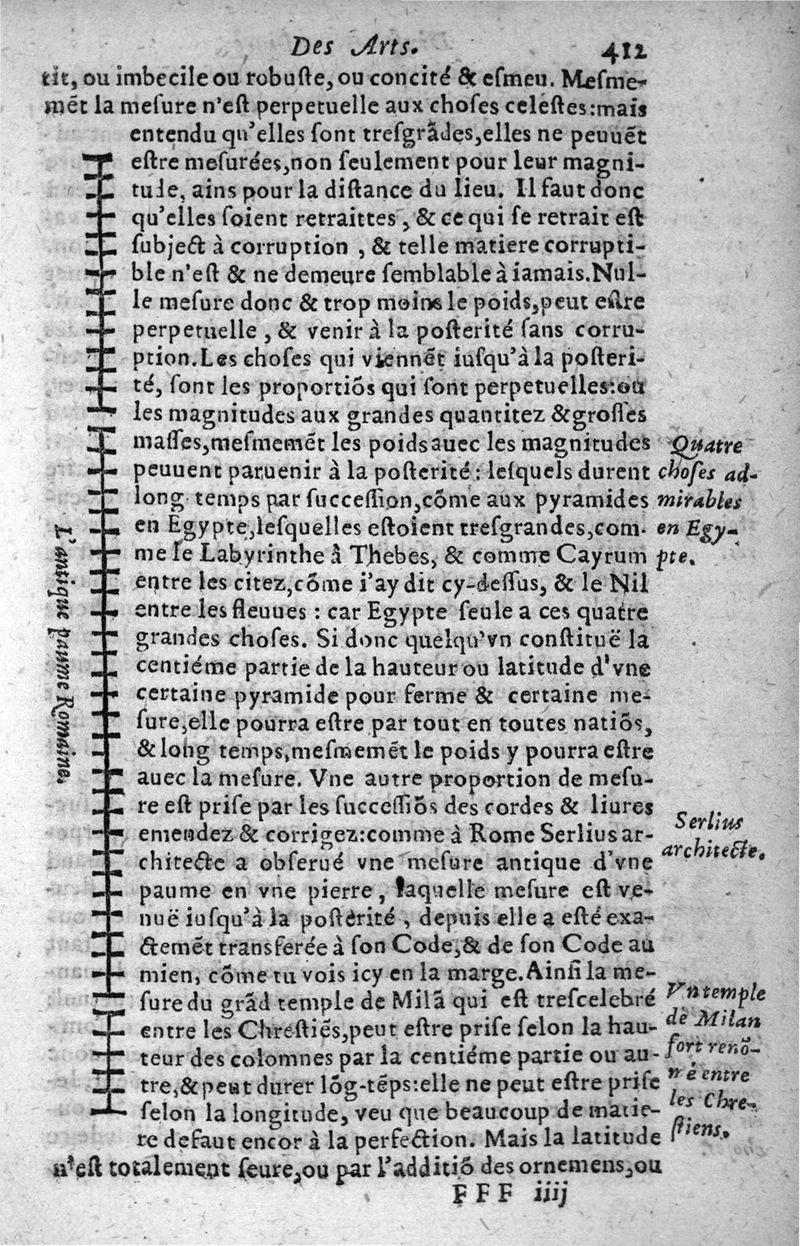 Des Arts.
412
tit, ou imbecile ou robuſte, ou concité & eſmeu. Meſme-
mẽt la meſure n'eſt perpetuelle aux choſes celeſtes: mais
entendu qu'elles ſont treſgrãdes, elles ne peuuẽt
eſtre meſurées, non ſeulement pour leur magni-
tude, ains pour la diſtance du lieu. Il faut donc
qu'elles ſoient retraittes, & ce qui ſe retrait eſt
ſubject à corruption, & telle matiere corrupti-
ble n'eſt & ne demeure ſemblable à iamais. Nul-
le meſure donc & trop moins le poids, peut eſtre
perpetuelle, & venir à la poſterité ſans corru-
ption. Les choſes qui viennẽt iuſqu'à la poſteri-
té, ſont les proportiõs qui ſont perpetuelles: ou
les magnitudes aux grandes quantitez & groſſes
maſſes, meſmemẽt les poids auec les magnitudes
peuuent paruenir à la poſterité: leſquels durent
long temps par ſucceſſion, cõme aux pyramides
en Egypte, leſquelles eſtoient treſgrandes, com-
me le Labyrinthe à Thebes, & comme Cayrum
entre les citez, cõme i'ay dit cy-deſſus, & le Nil
entre les fleuues: car Egypte ſeule a ces quatre
grandes choſes. Si donc quelqu'vn conſtituë la
centiéme partie de la hauteur ou latitude d'vne
certaine pyramide pour ferme & certaine me-
ſure, elle pourra eſtre par tout en toutes natiõs,
& long temps, meſmemẽt le poids y pourra eſtre
auec la meſure. Vne autre proportion de meſu-
re eſt priſe par les ſucceſſiõs des cordes & liures
emendez & corrigez: comme à Rome Serlius ar-
chitecte a obſerué vne meſure antique d'vne
paume en vne pierre, laquelle meſure eſt ve-
nuë iuſqu'à la poſterité, depuis elle a eſté exa-
ctemẽt transferée à ſon Code, & de ſon Code au
mien, cõme tu vois icy en la marge. Ainſi la me-
ſure du grãd temple de Milã qui eſt treſcelebré
entre les Chreſtiẽs, peut eſtre priſe ſelon la hau-
teur des colomnes par la centiéme partie ou au-
tre, & peut durer lõg-tẽps: elle ne peut eſtre priſe
ſelon la longitude, veu que beaucoup de matie-
re defaut encor à la perfection. Mais la latitude
n'eſt totalement ſeure, ou par l'additiõ des ornemens, ou
FFF iiij
Quatre
choſes ad-
mirables
en Egy-
pte.
Serlius
architecte.
Vn temple
de Milan
fort renõ-
mé entre
les Chre-
ſtiens.
L'antique paume Romaine.